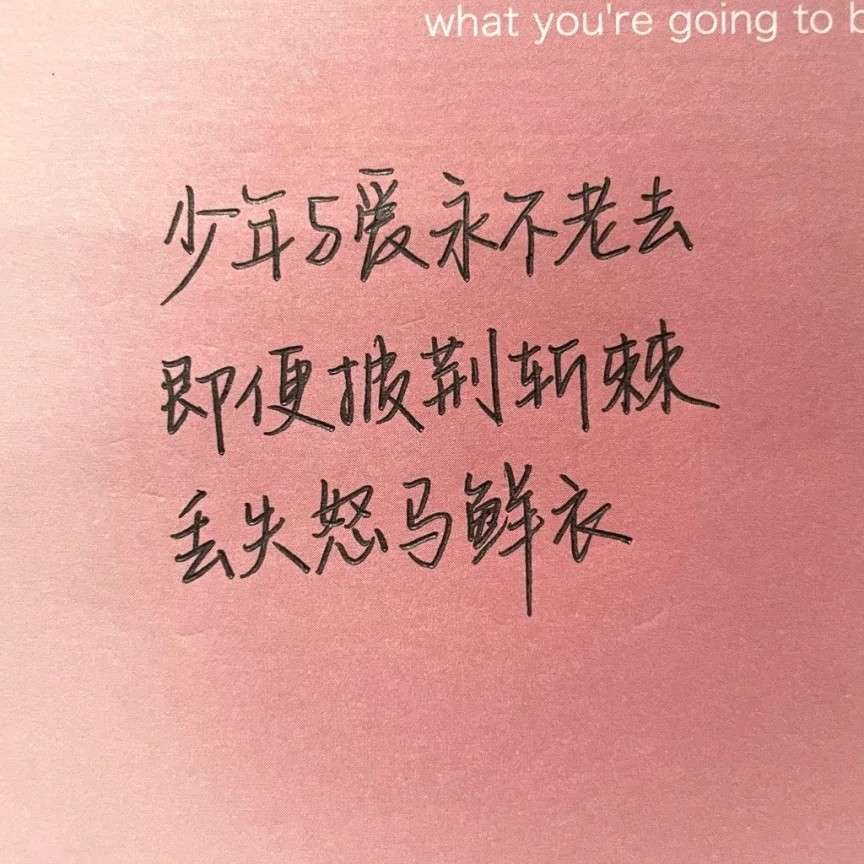 what you're going to b
少年与爱永不老去
即便披荆斩棘
丢失怒马鲜衣